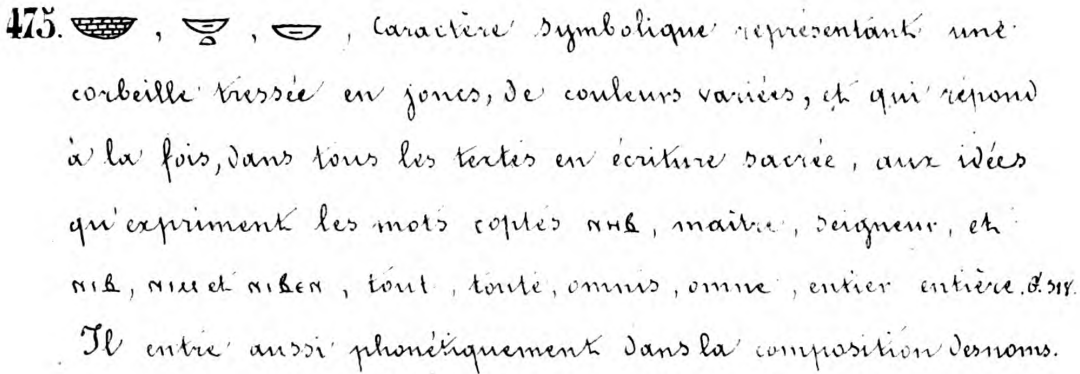 475. 𓎟, , , Caractère symbolique représentant une
corbeille tressée en joncs, de couleurs variées, et qui répond
à la fois, dans tous les textes en écriture sacrée, aux idées
qu'expriment les mots coptes ⲛⲏⲃ, maître, seigneur, et
ⲛⲓⲃ, ⲛⲓⲙ et ⲛⲓⲃⲉⲛ, tout, toute, omnis, omne, entier entière.
Il entre aussi phonétiquement dans la composition des noms.